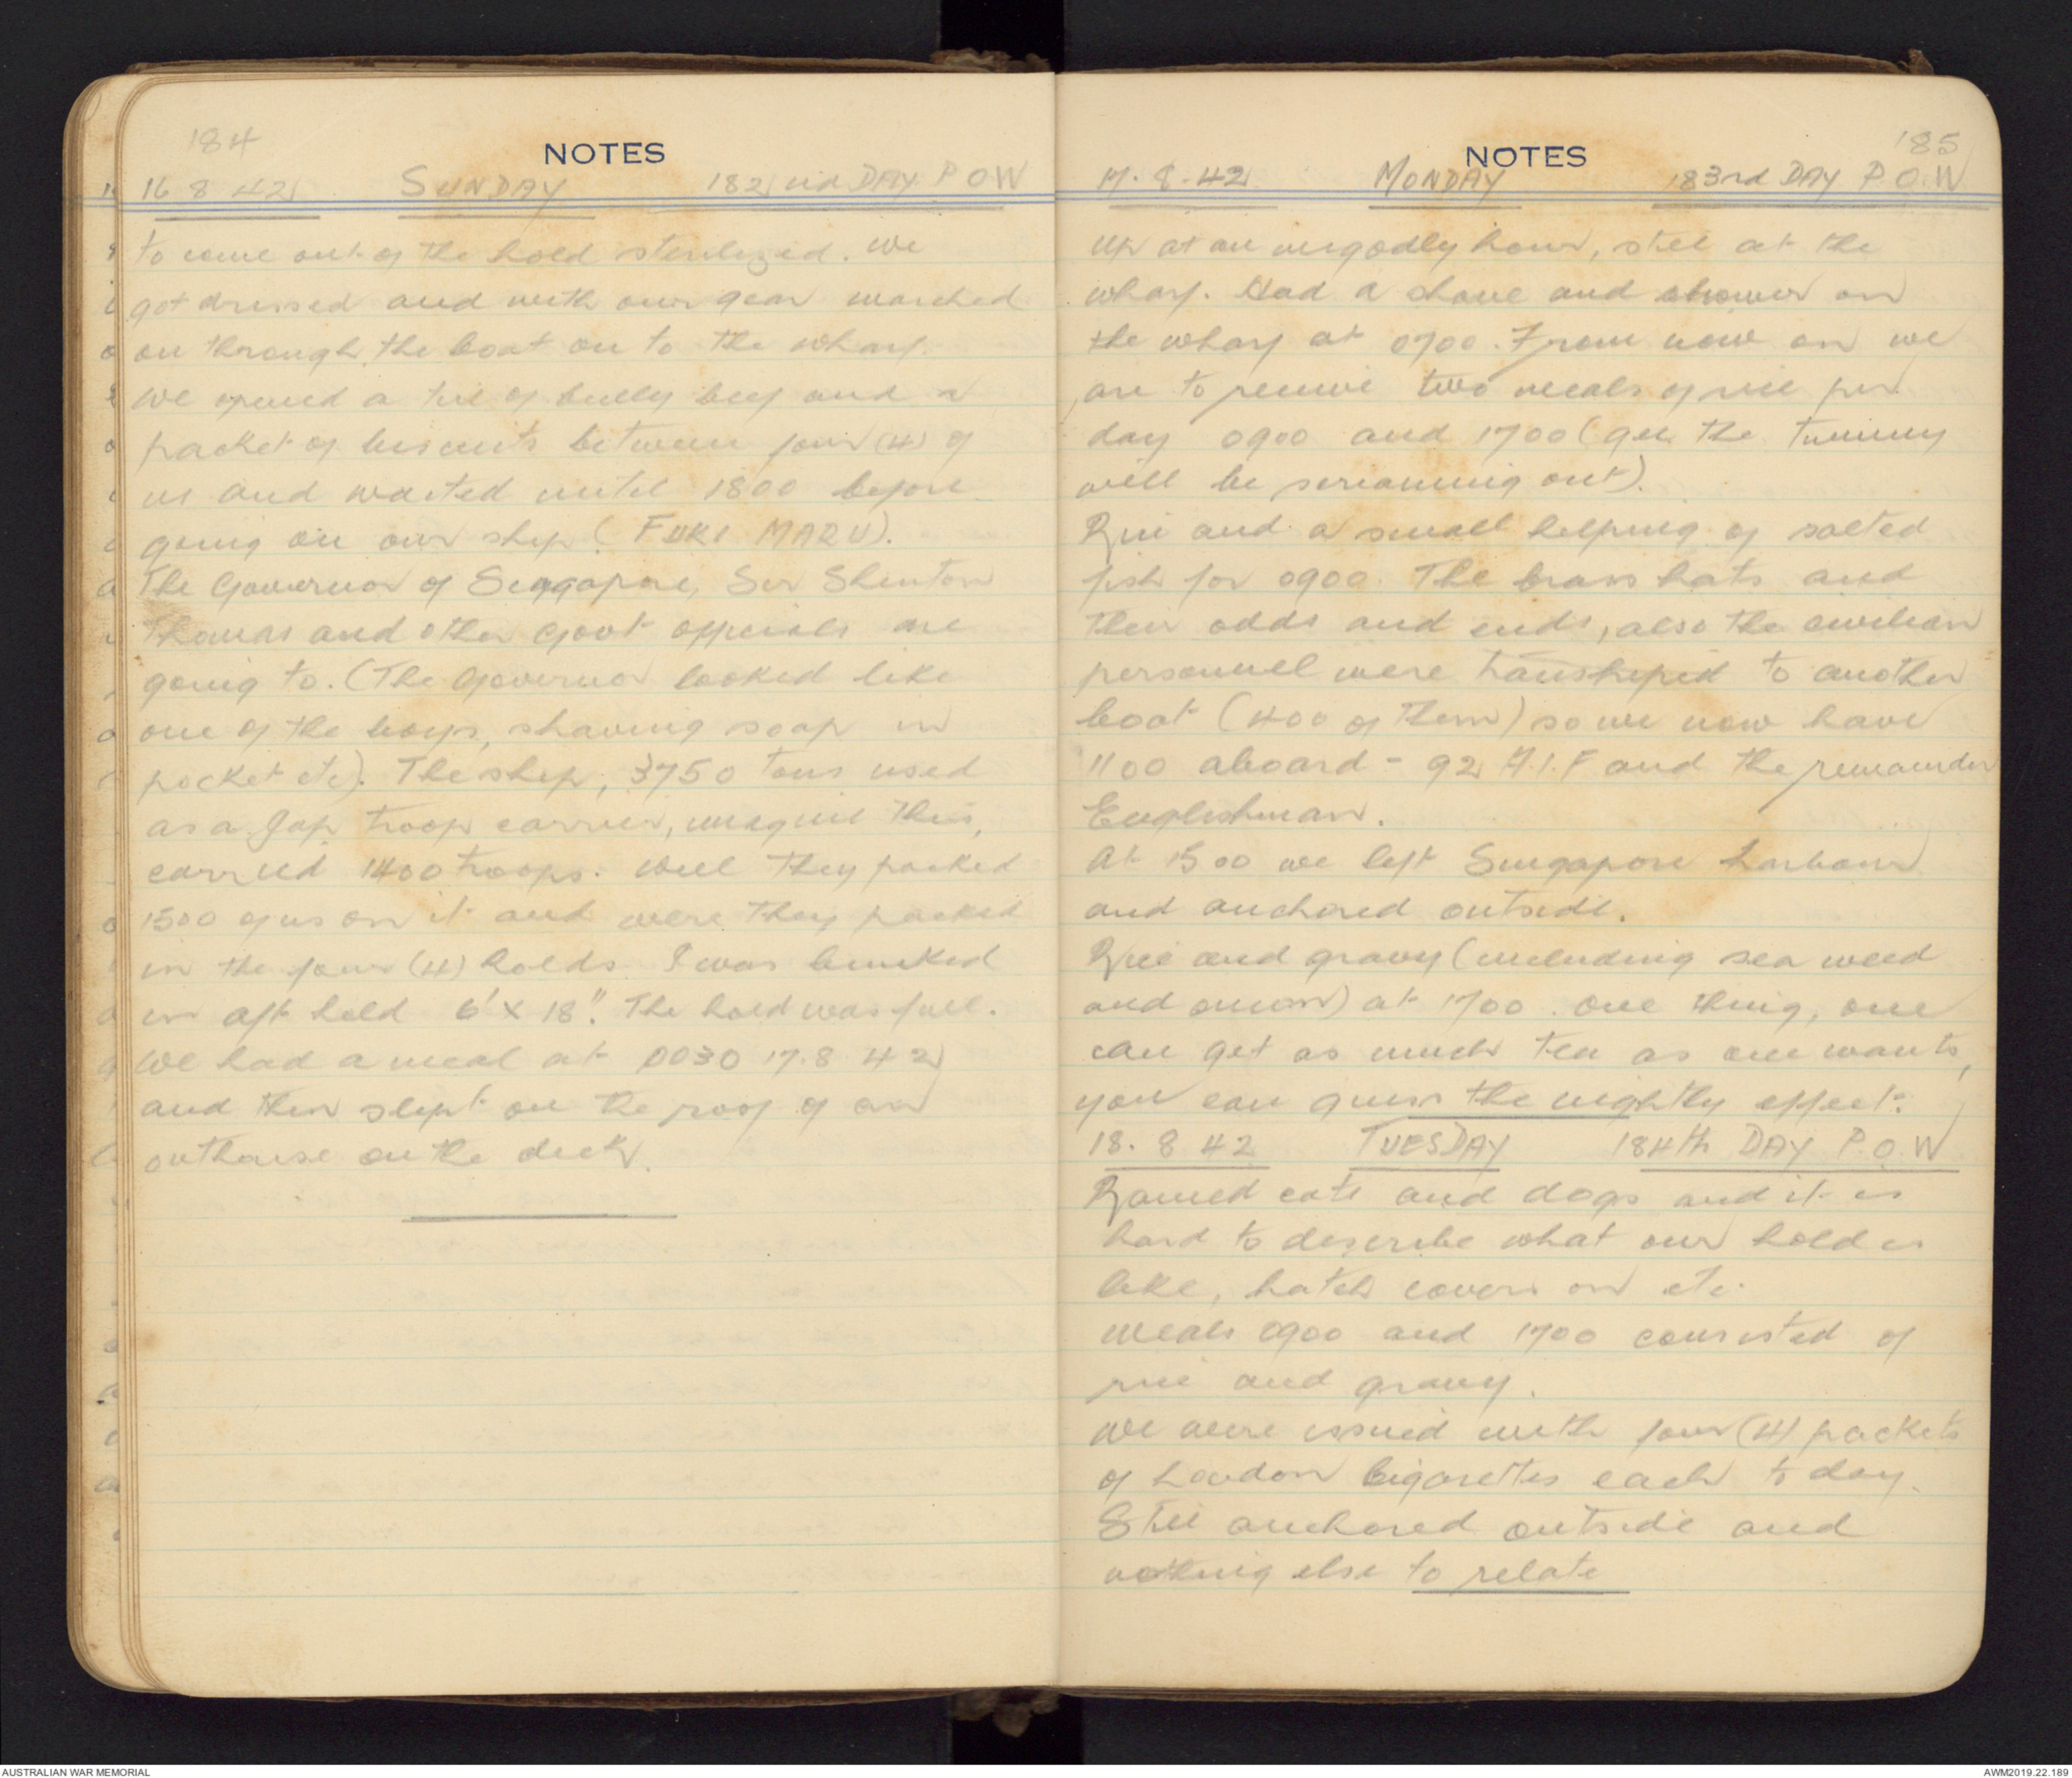 184
NOTES
16 8 42 SUNDAY 182nd DAY P O W
to come out of the hold sterilized. We
got dressed and with our gear marched
on through the boat on to the wharf.
We opened a tin of bully beef and a
packet of biscuits between four (4) of
us and waited until 1800 before
going on our ship (FUKI MARU).
The Governor of Singapore, Sir Shenton
Thomas and other Govt officials are
going to. (The Governor looked like
one of the boys, shaving soap in
pocket etc). The ship, 3750 tons used
as a Jap troop carrier, imagine this,
carried 1400 troops. Well they packed
1500 of us on it and were they packed
in the four (4) holds. I was bunked
in aft hold 6' x 18". The hold was full.
We had a meal at 0030 17.8 42
and then slept on the roof of an
outhouse on the deck.
185
NOTES
17. 8. 42 MONDAY 183rd DAY P.O.W
Up at an ungodly hour, still at the
wharf. Had a shave and shower on
the wharf at 0700. From now on we
are to receive two meals of rice per
day 0900 and 1700 (gee the tummy
will be screaming out).
Rice and a small helping of salted
fish for 0900. The brass hats and
their odds and ends, also the civilian
personnel were transhiped to another
boat (400 of them) so we now have
1100 aboard - 92 A.I.F and the remainder
Englishman.
At 1500 we left Singapore harbour
and anchored outside.
Rice and gravy (including sea weed
and onion) at 1700. One thing, one
can get as much tea as one wants,
you can guess the nightly effect.
18. 8 42 TUESDAY 184th DAY P.O.W
Rained cats and dogs and it is
hard to describe what our hold is
like, hatch covers on etc.
Meals 0900 and 1700 consisted of
rice and gravy.
We were issued with four (4) packets
of London Cigarettes each to day.
Still anchored outside and
nothing else to relate
AUSTRALIAN WAR MEMORIAL
AWM2019.22.189